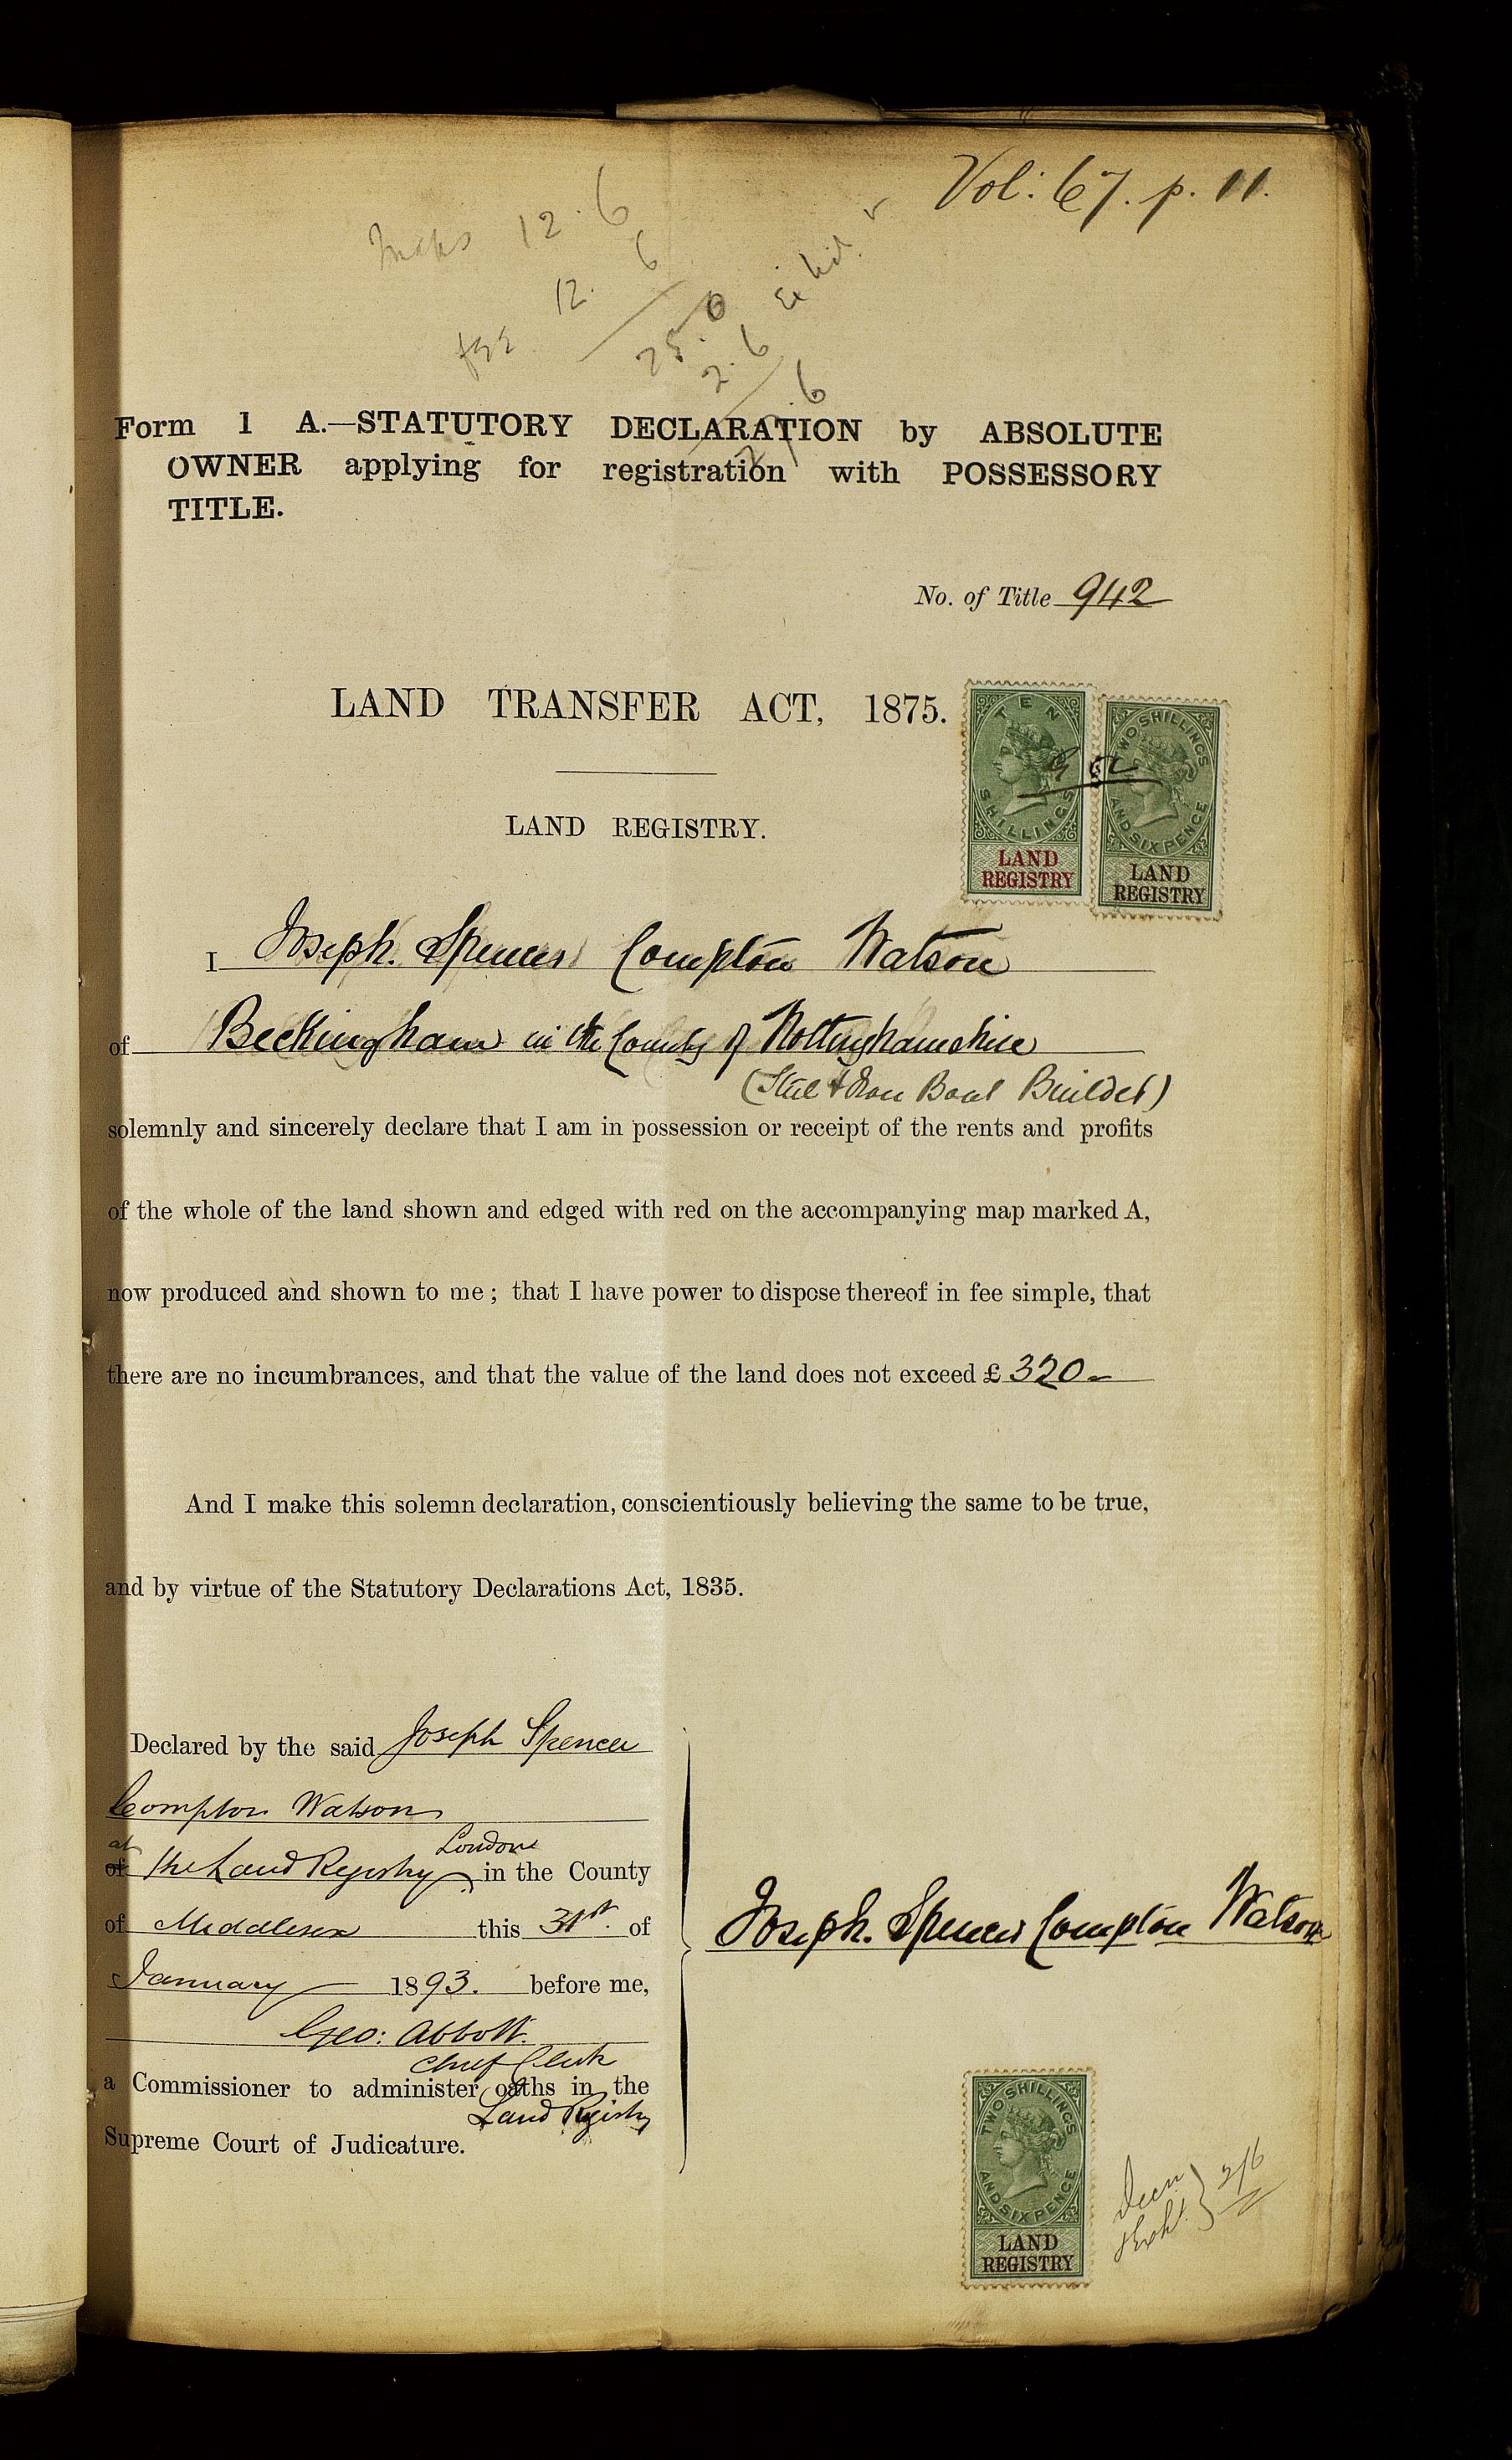 Vol: 67. p. 11.
Maps 12.6
fee 12.6
25.0
2.6 Exhibit
27.6
Form 1 A.—STATUTORY DECLARATION by ABSOLUTE
OWNER applying for registration with POSSESSORY
TITLE.
No. of Title 942
LAND TRANSFER ACT, 1875.
TEN SHILLINGS
LAND
REGISTRY
TWO SHILLINGS AND SIX PENCE
LAND
REGISTRY
LAND REGISTRY.
I Joseph. Spencer Compton Watson
of Beckingham in the County of Nottinghamshire
(Steel & Iron Boat Builder)
solemnly and sincerely declare that I am in possession or receipt of the rents and profits
of the whole of the land shown and edged with red on the accompanying map marked A,
now produced and shown to me; that I have power to dispose thereof in fee simple, that
there are no incumbrances, and that the value of the land does not exceed £ 320-
And I make this solemn declaration, conscientiously believing the same to be true,
and by virtue of the Statutory Declarations Act, 1835.
Declared by the said Joseph Spencer
Compton Watson
at of the Land Registry London in the County
of Middlesex this 31st. of
January 1893. before me,
Geo: Abbott.
Chief Clerk
a Commissioner to administer oaths in the
Land Registry
Supreme Court of Judicature.
Joseph. Spencer Compton Watson
TWO SHILLINGS AND SIX PENCE
LAND
REGISTRY
2/6